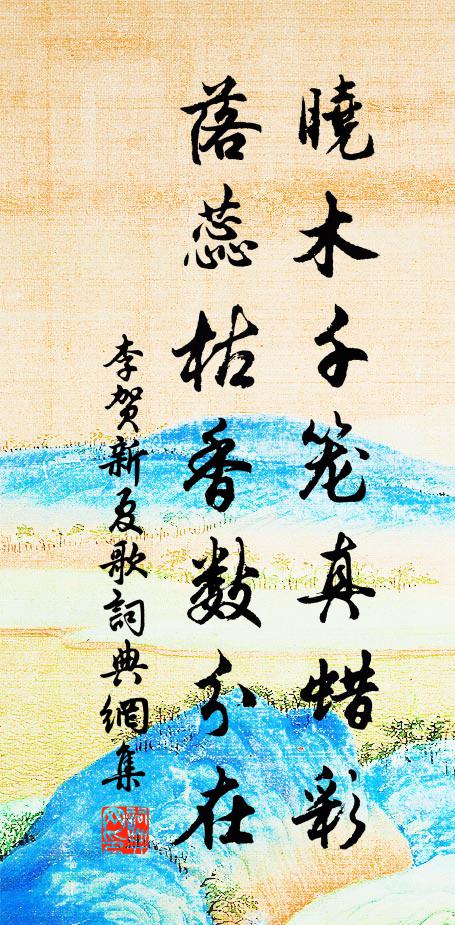 曉木千笼真蜡彩
落蕊枯香数分在
李贺新夏歌詞典網集